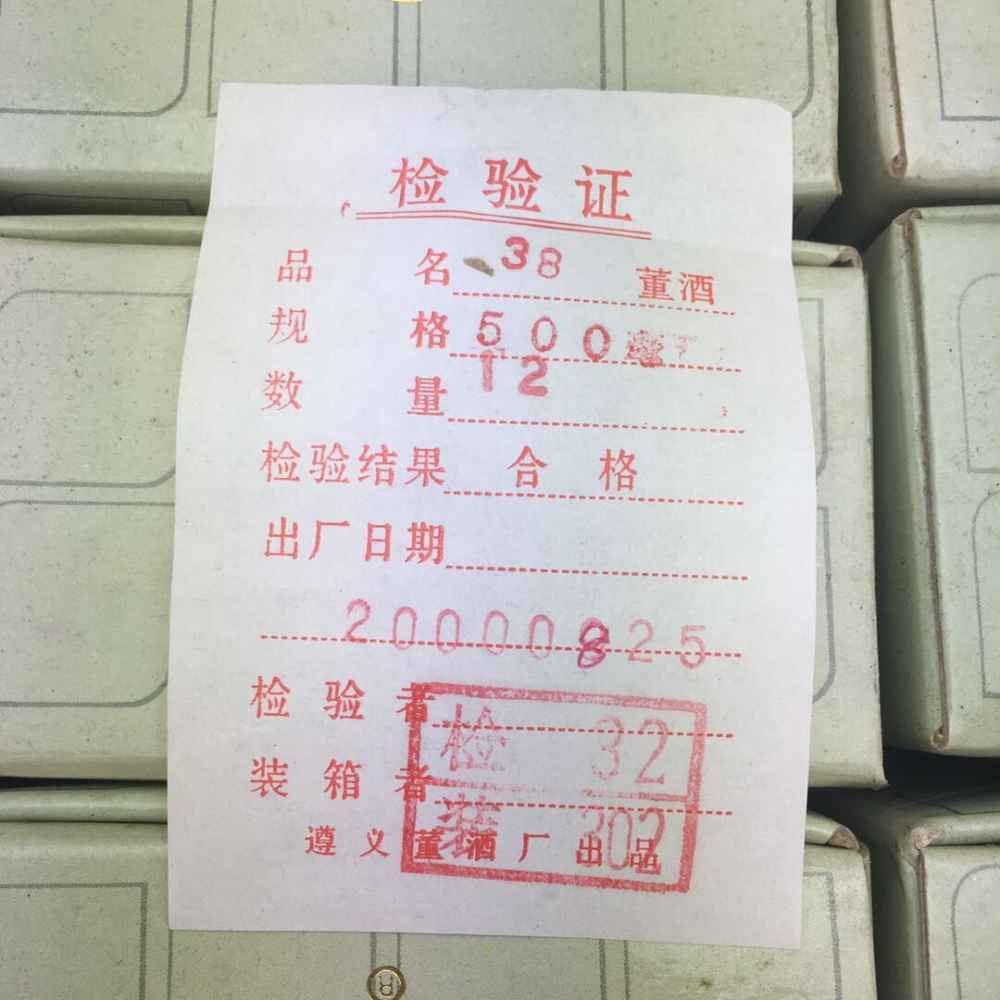 检验证
品名 38 董酒
规格 500
数量 12
检验结果 合格
出厂日期
20000825
检验者 检 32
装箱者 装 302
遵义董酒厂出品